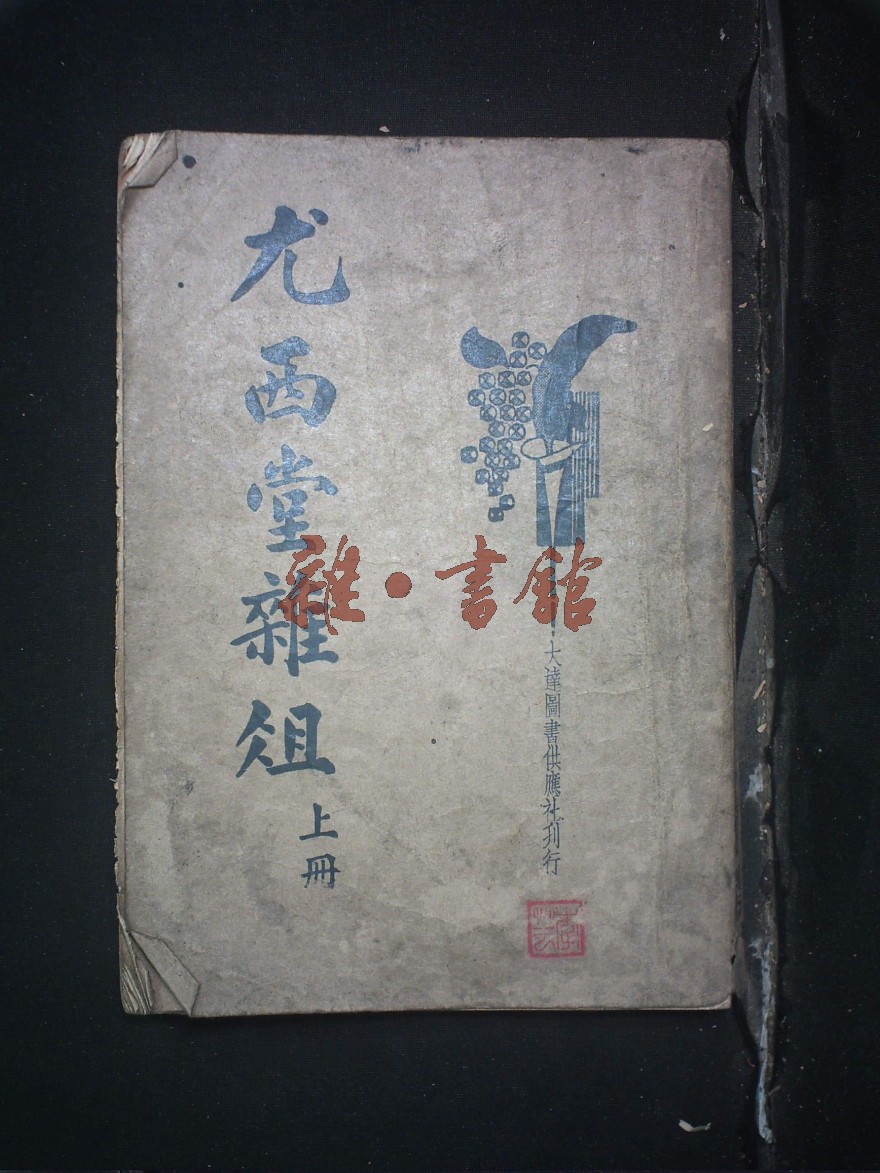 尤西堂雜俎
上冊
大達圖書供應社刊行
雜·書館